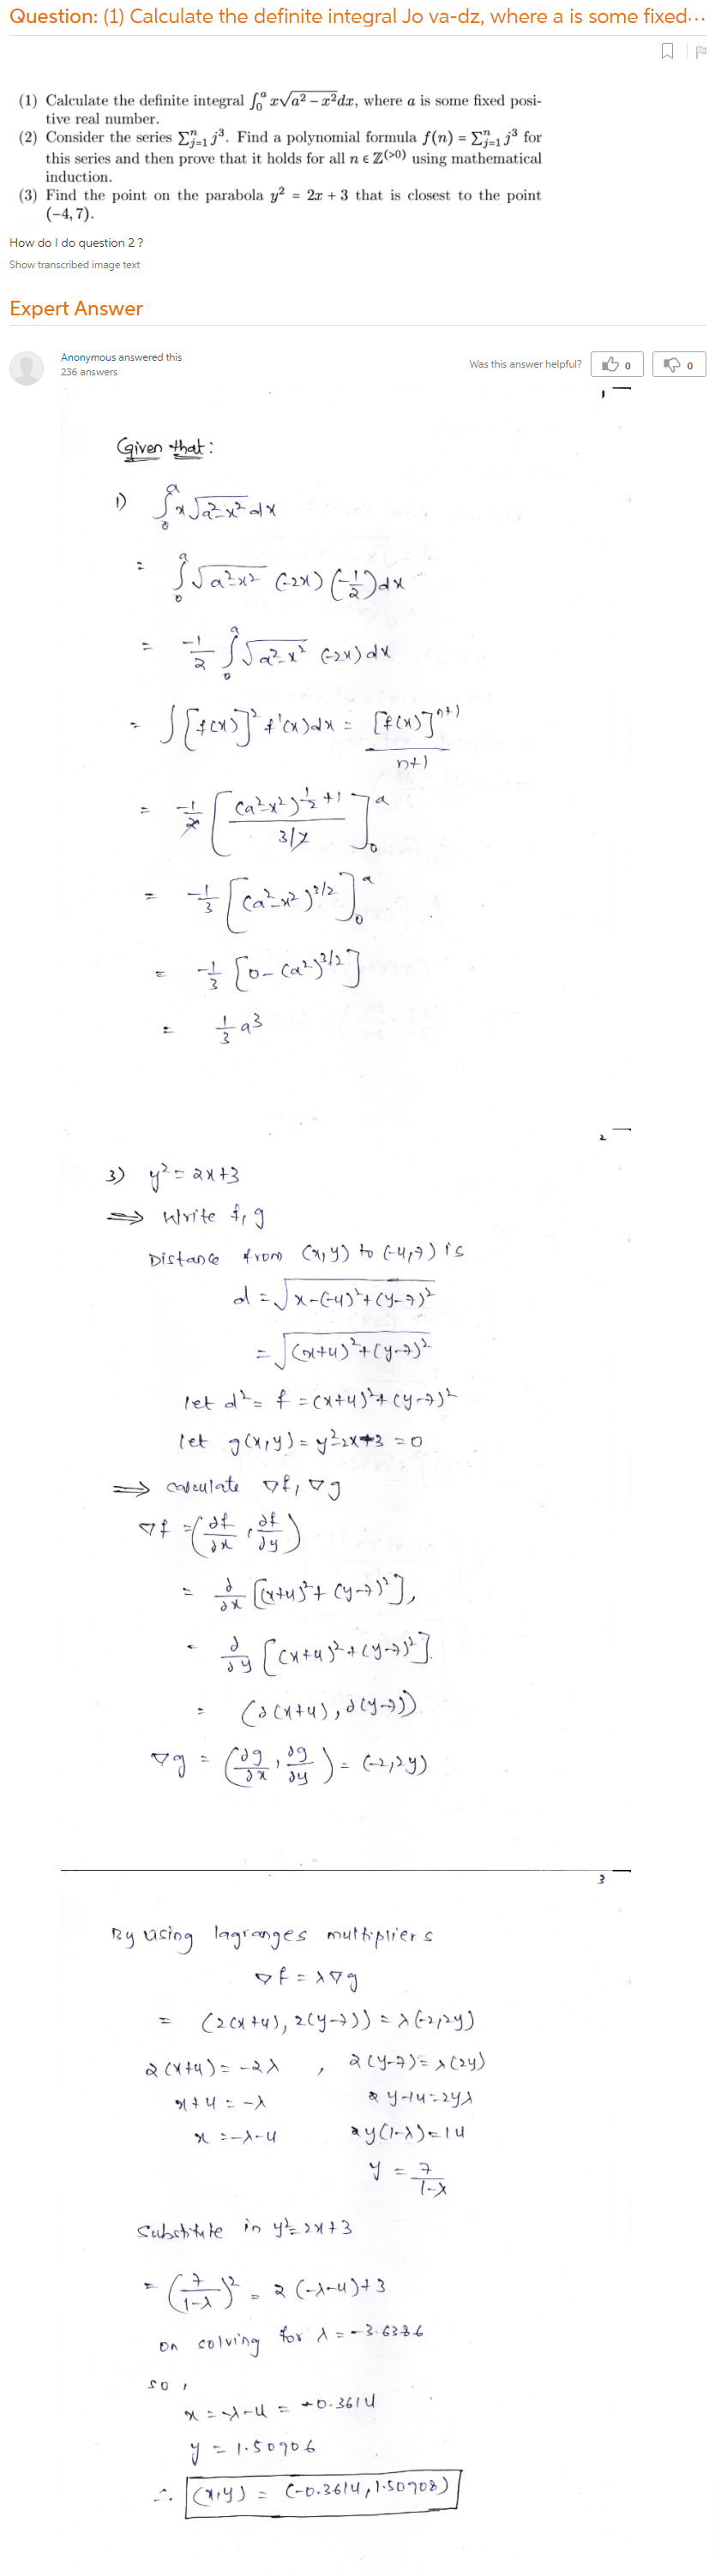 Question: (1) Calculate the definite integral Jo va-dz, where a is some fixed...
(1) Calculate the definite integral ∫₀ᵃ x√(a² − x²)dx, where a is some fixed posi-
tive real number.
(2) Consider the series Σⁿⱼ₌₁ j³. Find a polynomial formula f(n) = Σⁿⱼ₌₁ j³ for
this series and then prove that it holds for all n ϵ Z⁽>⁰⁾ using mathematical
induction.
(3) Find the point on the parabola y² = 2x + 3 that is closest to the point
(−4, 7).
How do I do question 2 ?
Show transcribed image text
Expert Answer
Anonymous answered this
236 answers
Was this answer helpful?
0
0
1
Given that:
1) ∫₀ᵃ x√(a²-x²) dx
= ∫₀ᵃ √(a²-x²) (-2x) (-1/2) dx
= -1/2 ∫₀ᵃ √(a²-x²) (-2x) dx
= ∫[f(x)]² f'(x)dx = [f(x)]ⁿ⁺¹ / n+1
= -1/2 [(a²-x²)^(1/2 +1) / 3/2]₀ᵃ
= -1/3 [(a²-x²)^(3/2)]₀ᵃ
= -1/3 [0-(a²)^(3/2)]
= 1/3 a³
2
3) y² = 2x+3
⇒ Write f, g
Distance from (x,y) to (-4,7) is
d = √(x-(-4)²+(y-7)²)
= √((x+4)²+(y-7)²)
let d² = f = (x+4)²+(y-7)²
let g(x,y) = y²-2x+3 = 0
⇒ calculate ∇f, ∇g
∇f = (∂f/∂x, ∂f/∂y)
= ∂/∂x [(x+4)²+(y-7)²],
= ∂/∂y [(x+4)²+(y-7)²].
= (2(x+4), 2(y-7)).
∇g = (∂g/∂x, ∂g/∂y) = (-2,2y)
3
By using lagranges multipliers
∇f = λ∇g
= (2(x+4), 2(y-7)) = λ(-2,2y)
2(x+4) = -2λ , 2(y-7) = λ(2y)
x+4 = -λ 2y-14 = 2yλ
x = -λ-4 2y(1-λ) = 14
y = 7/1-λ
Substitute in y² = 2x+3
= (7/1-λ)² = 2(-λ-4)+3
on solving for λ = -3.6386
so,
x = -λ-4 = -0.3614
y = 1.50906
∴ (x,y) = (-0.3614, 1.50908)